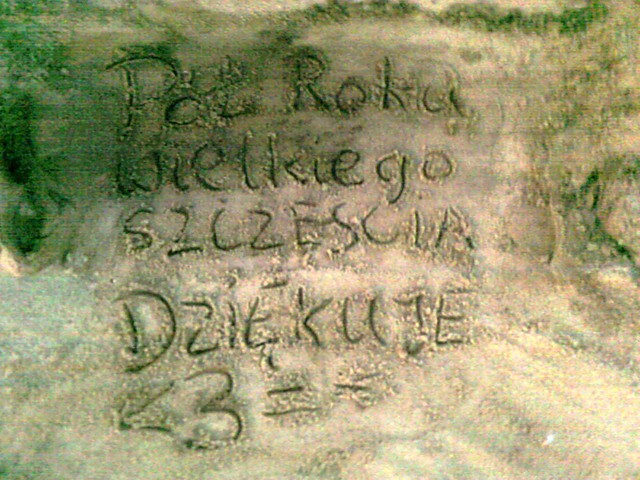 Pół Roku
wielkiego
SZCZĘŚCIA
DZIĘKUJĘ
<3 = =